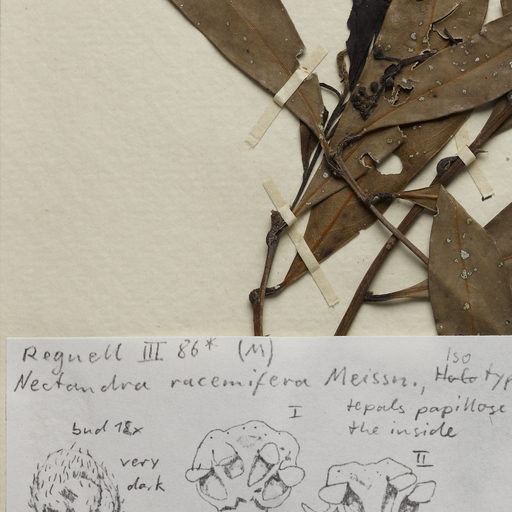 Regnell III 86* (M)
Iso
Nectandra racemifera Meissn., Holo typ
I
tepals papillose
bud 18x
the inside
very
II
dark